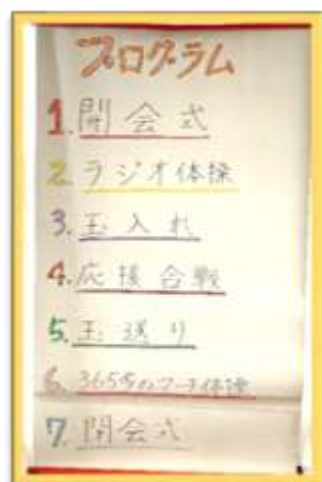 プログラム
1. 開会式
2. ラジオ体操
3. 玉入れ
4. 応援合戦
5. 玉送り
6. 365歩のマーチ体操
7. 閉会式